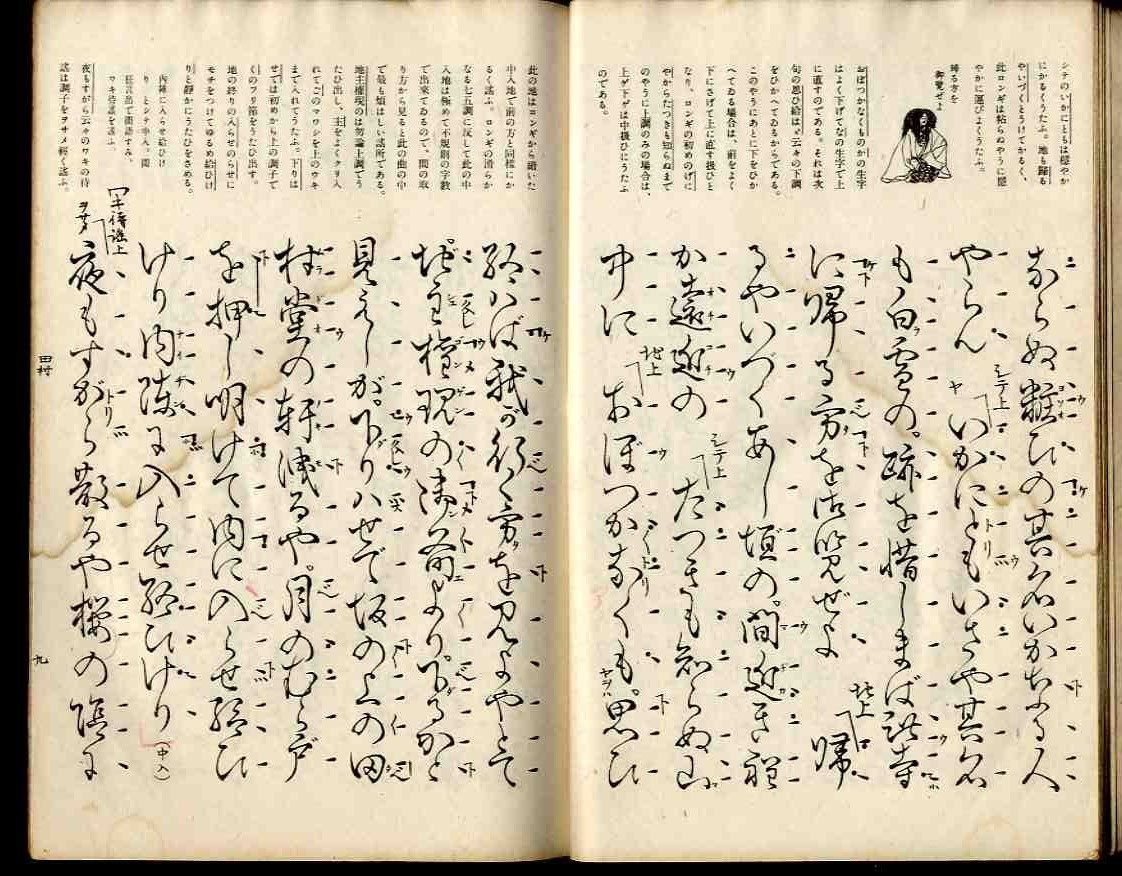 シテのいかにともは穏やか
にかるくうたふ。地も歸る
やいづくとうけてかるく、
此ロンギは粘らぬやうに穏
やかに運びよくうたふ。
歸る方を
御覧ぜよ
おぼつかなくものがの生字
はよく下げてなの生字で上
に直すのである。それは次
句の思ひ給はゞ云々の下調
をひかへてゐるからである。
このやうにあとに下をひか
へてゐる場合は、前をよく
下にさげて上に直す扱ひと
なり、ロンギの初めのげに
やからたつきも知らぬまで
のやうに上調のみの場合は、
上げ下ゲは中扱ひにうたふ
のである。
ならぬ粧ひの其名いかなる人
やらん
シテ上
いかにともいさや其名
も、白雪の。跡を惜しまば此寺
に帰る方を御覧ぜよ
地上
帰
るやいづくあし垣の。間近き程
か遠近の
シテ上
たつきも知らぬ山
中に
地上
おぼつかなくも。思ひ
此の地はロンギから續いた
中入地で前の方と同様にか
るく謡ふ。ロンギの滑らか
なる七五調に反して此の中
入地は極めて不規則の字數
で出來てゐるので、間の取
り方から見ると此の曲の中
で最も煩はしい謡所である。
地主權現のは勿論上調でう
たひ出し、主をよくヲ入
れてごのマワシを上のウキ
まで入れてうたふ。下りは
せでは初めから上の調子で
くのフリ節をうたひ出す。
地の終りの入らせのらせに
モチをつけてゆるめ給ひけ
りと靜かにうたひをさめる。
内陣に入らせ給ひけ
り　とシテ中入。間
狂言出で間語すみ、
ワキ待謡を謡ふ。
夜もすがら云々のワキの待
謡は調子をヲサメ輕く謡ふ。
給はば我が行く方を見よやとて
地主權現の御前より。下るかと
見えしが。下りはせで坂の上の田
村堂の軒洩るや。月のむら戸
を押し明けて内に入らせ給ひ
けり内陣に入らせ給ひけり
（中入）
ワキ待謡上
ヲサメ
夜もすがら散るや櫻の陰に
田村
九